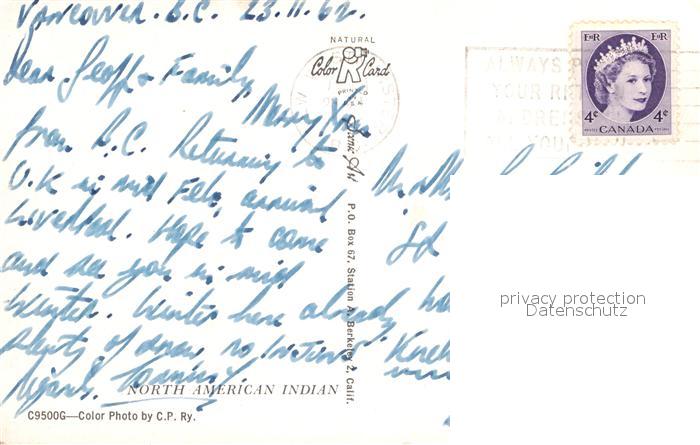 Vancouver. B.C. 23.11.62.
Dear Geoff & Family,
Merry Xmas
from B.C. Returning to
U.K in mid Feb, arrival
Liverpool. Hope to come
and see you in mid
Winter. Winter here already
plenty of snow, no
regards. Tommy.
NORTH AMERICAN INDIAN
C9500G—Color Photo by C.P. Ry.
NATURAL
Color Card
PRINTED
U.S.A.
Scenic Art
P.O. Box 67, Station A, Berkeley 2, Calif.
ALWAYS
YOUR
EIIR EIIR
4¢ 4¢
CANADA
privacy protection
Datenschutz